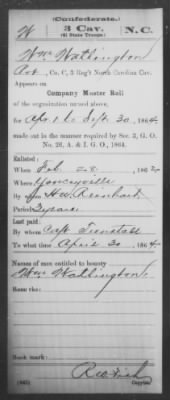 (Confederate.)
W 3 Cav. N.C.
(41 State Troops.)
Wm Watlington
Pvt, Co. C, 3 Reg't North Carolina Cav.
Appears on
Company Muster Roll
of the organization named above,
for Apr 1 to Sept 30, 1864
made out in the manner required by Sec. 2, G. O.
No. 26, A. & I. G. O., 1864.
Enlisted:
When Feb. 28, 1862
Where Yanceyville
By whom H. W. Reinhart
Period 3 years
Last paid:
By whom Capt Tunstall
To what time April 30, 1864
Names of men entitled to bounty
Wm Watlington
Remarks:
Book mark:
Copyist.